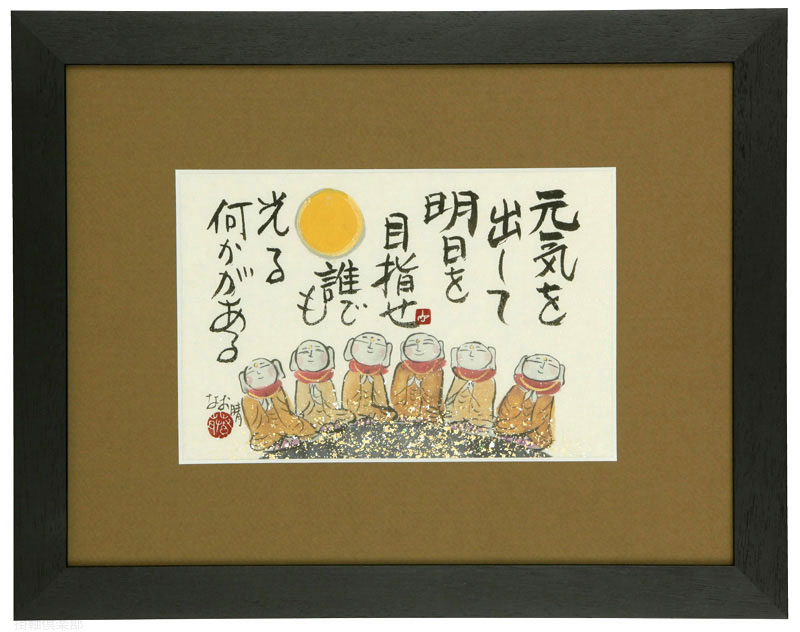 元気を
出して
明日を
目指せ
誰で
も
光る
何かがある
なお晴
掛軸倶楽部